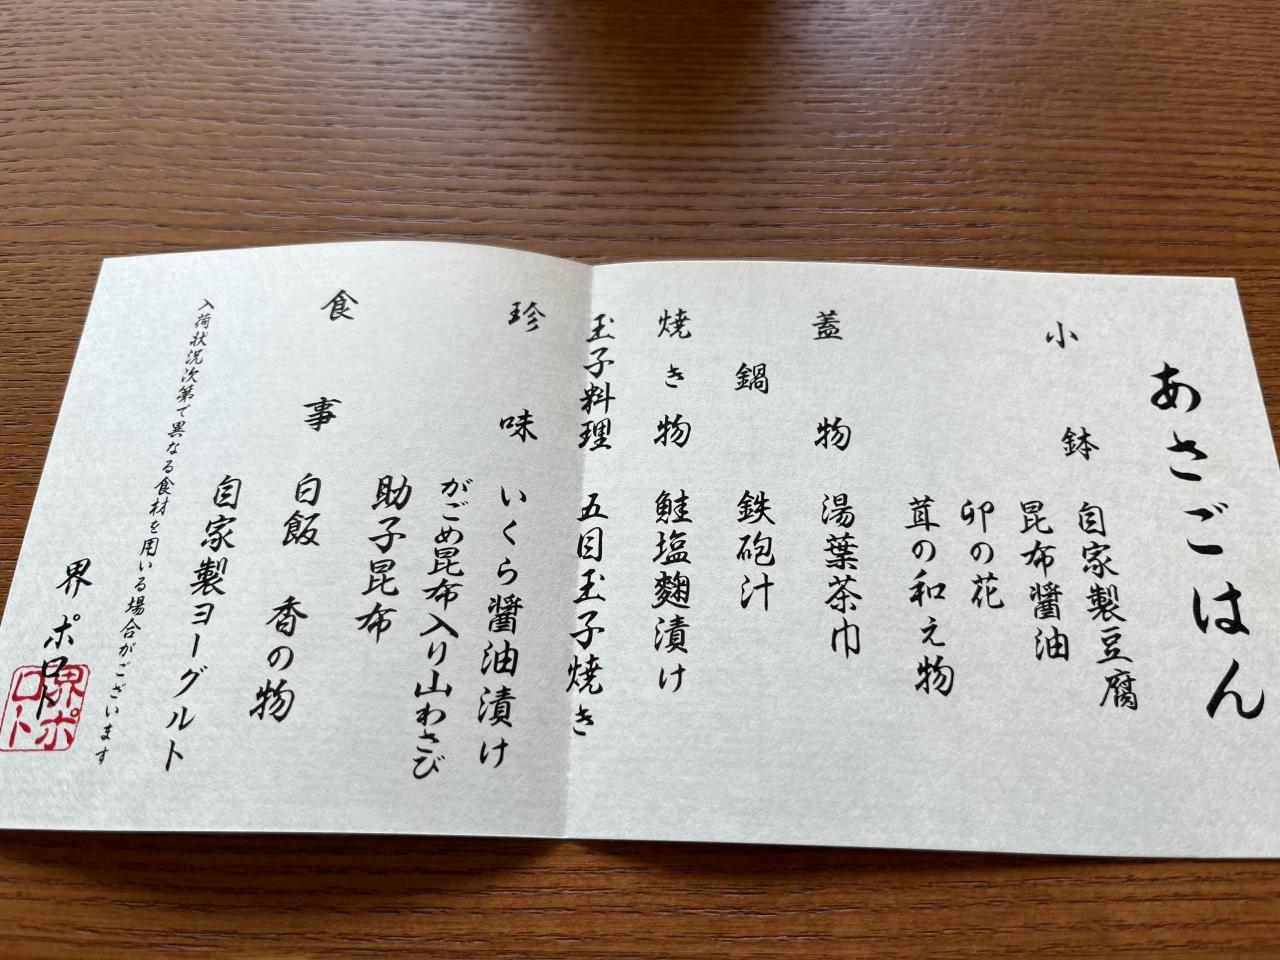 あさごはん
小鉢 自家製豆腐
昆布醤油
卯の花
茸の和え物
蓋物 湯葉茶巾
鍋 鉄砲汁
焼き物 鮭塩麴漬け
玉子料理 五目玉子焼き
珍味 いくら醤油漬け
がごめ昆布入り山わさび
助子昆布
食事 白飯 香の物
自家製ヨーグルト
入荷状況次第で異なる食材を用いる場合がございます
界 ポロト
界ポロト